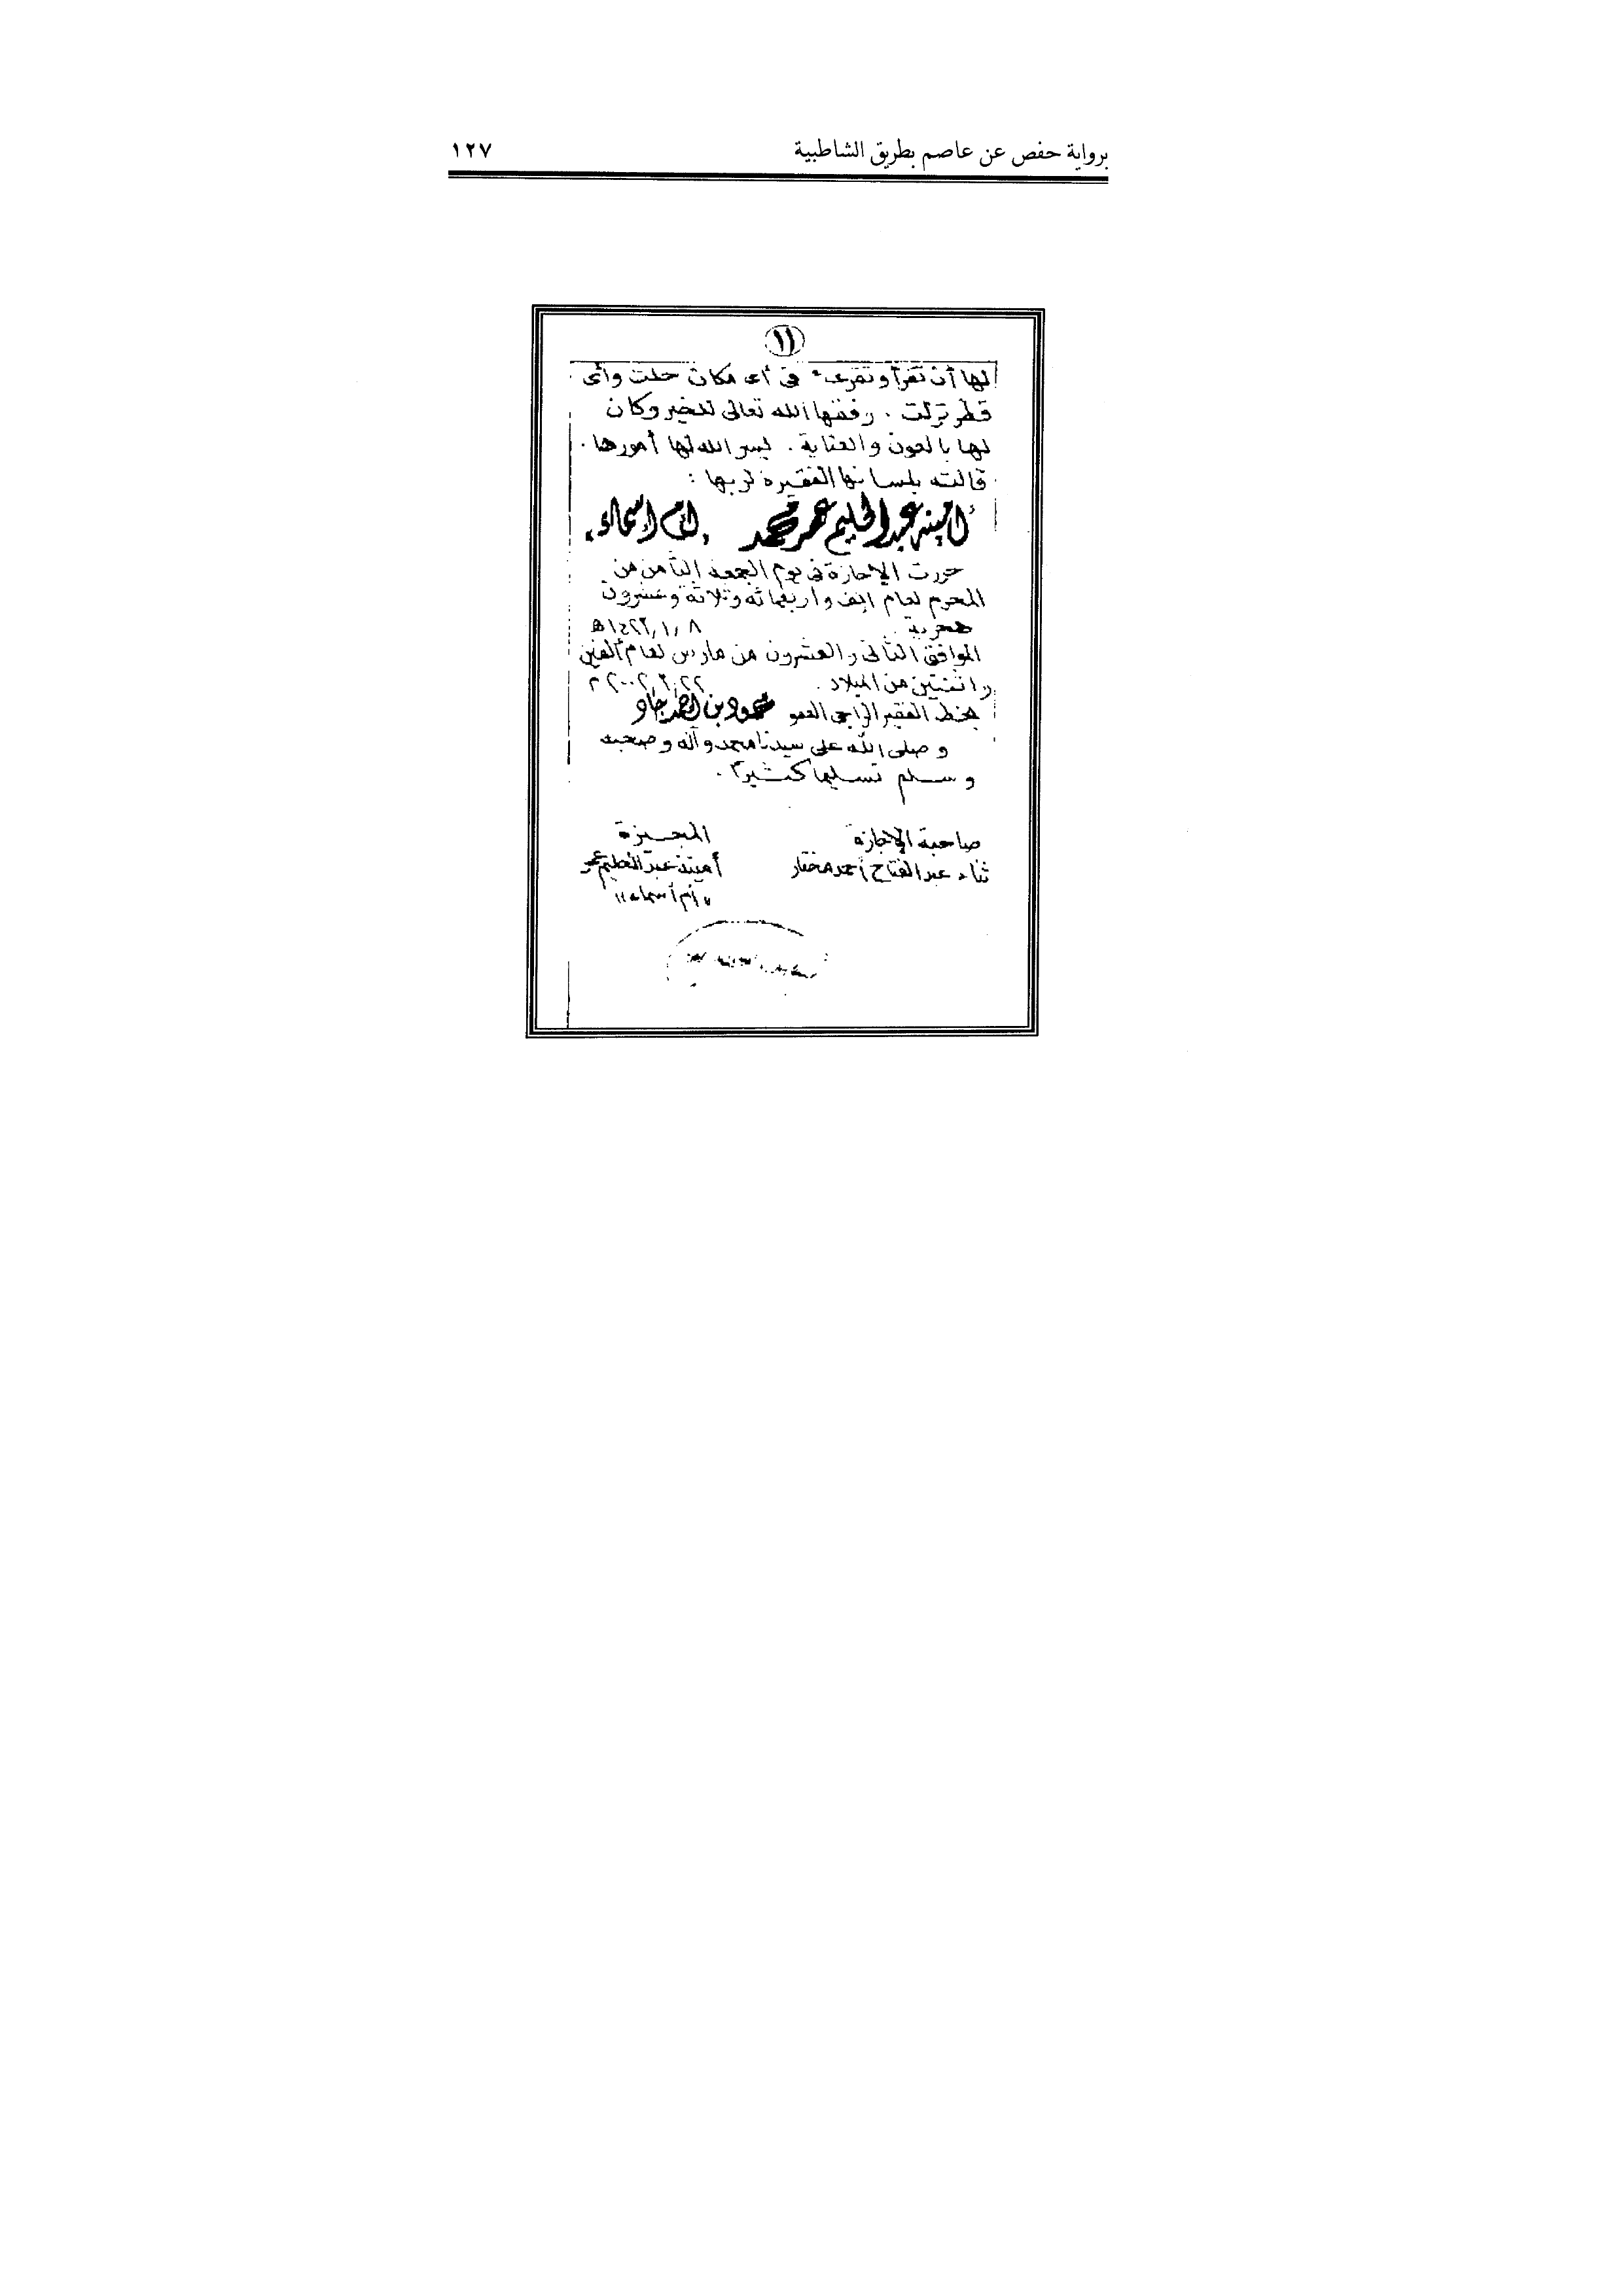 برواية حفص عن عاصم بطريق الشاطبية ١٢٧
١١
لها أن تقرأ وتقرىء في أى مكان حلت وأى
قطر نزلت . وفقها الله تعالى للخير وكان
لها بالعون والعناية . يسر الله لها أمورها .
قالته بلسانها الفقيرة لربها :
أمينة عبد الحليم عمر محمد "أم أسماء"
حررت الإجازة فى يوم الجمعة الثامن من
المحرم لعام ألف وأربعمائة وثلاثة وعشرون
هجرية ٨ / ١ / ١٤٢٣ه
الموافق الثانى والعشرون من مارس لعام ألفين
واثنتين من الميلاد . ٢٢ / ٣ / ٢٠٠٢ م
بخط الفقير الراجى العفو محمود بن أحمد جاد
وصلى الله على سيدنا محمد وآله وصحبه
وسلم تسليما كثيرا .
صاحبة الإجازة المجيزة
ثناء عبد الفتاح أحمد مختار أمينة عبد الحليم عمر
"أم أسماء"